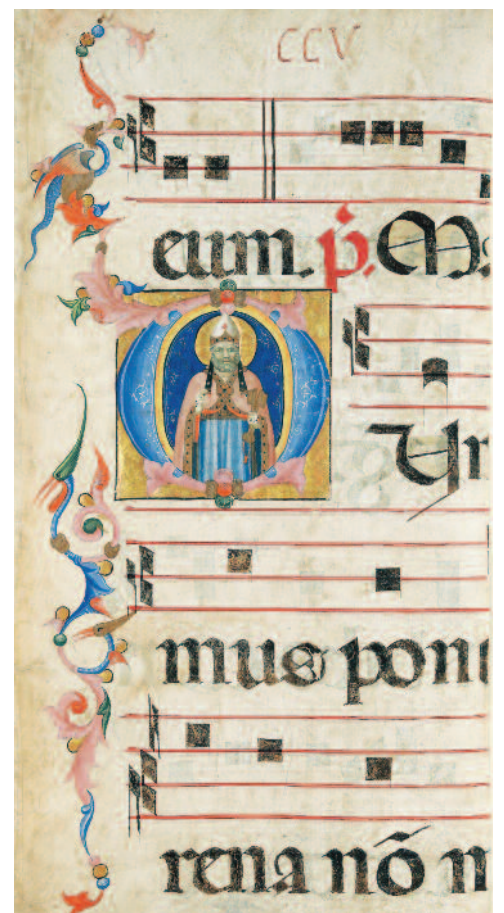 CCV
eum. p̄. M
O Yr
mus pont
rena nõ m